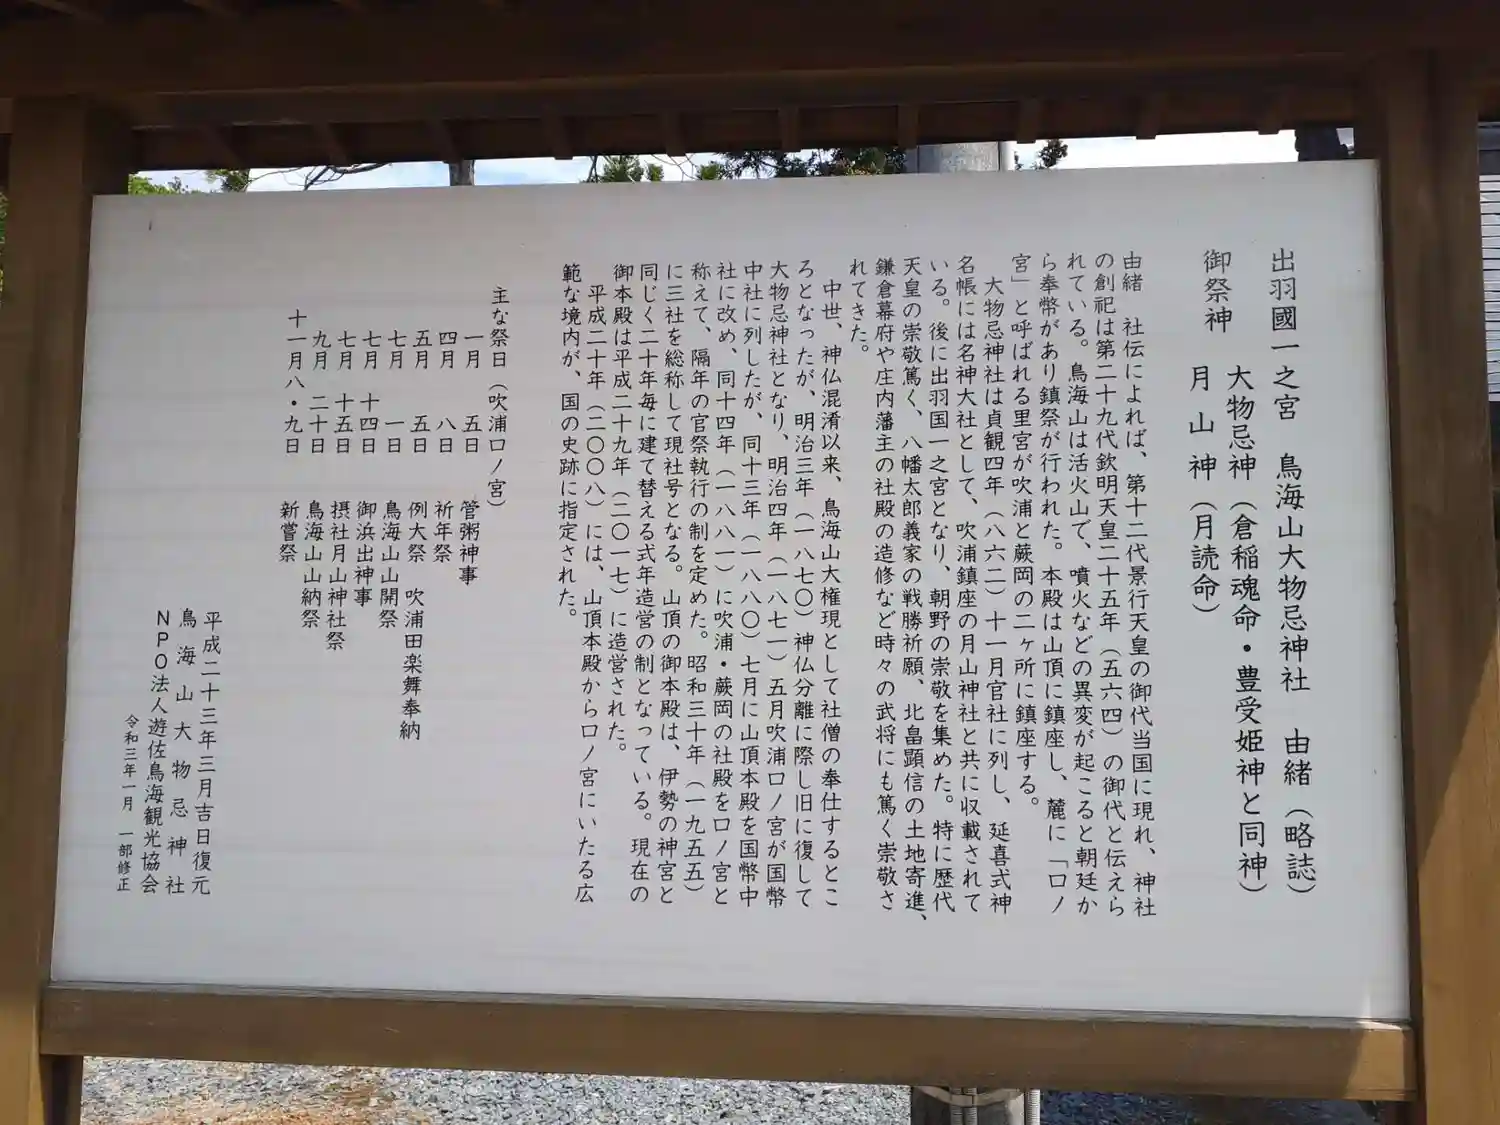 出羽國一之宮 鳥海山大物忌神社 由緒（略誌）
御祭神 大物忌神（倉稲魂命・豊受姫神と同神）
月山神（月読命）
由緒 社伝によれば、第十二代景行天皇の御代当国に現れ、神社
の創祀は第二十九代欽明天皇二十五年（五六四）の御代と伝えら
れている。鳥海山は活火山で、噴火などの異変が起こると朝廷か
ら奉幣があり鎮祭が行われた。本殿は山頂に鎮座し、麓に「口ノ
宮」と呼ばれる里宮が吹浦と蕨岡の二ヶ所に鎮座する。
大物忌神社は貞観四年（八六二）十一月官社に列し、延喜式神
名帳には名神大社として、吹浦鎮座の月山神社と共に収載されて
いる。後に出羽国一之宮となり、朝野の崇敬を集めた。特に歴代
天皇の崇敬篤く、八幡太郎義家の戦勝祈願、北畠顕信の土地寄進、
鎌倉幕府や庄内藩主の社殿の造修など時々の武将にも篤く崇敬さ
れてきた。
中世、神仏混淆以来、鳥海山大権現として社僧の奉仕するとこ
ろとなったが、明治三年（一八七〇）神仏分離に際し旧に復して
大物忌神社となり、明治四年（一八七一）五月吹浦口ノ宮が国幣
中社に列したが、同十三年（一八八〇）七月に山頂本殿を国幣中
社に改め、同十四年（一八八一）に吹浦・蕨岡の社殿を口ノ宮と
称えて、隔年の官祭執行の制を定めた。昭和三十年（一九五五）
に三社を総称して現社号となる。山頂の御本殿は、伊勢の神宮と
同じく二十年毎に建て替える式年造営の制となっている。現在の
御本殿は平成二十九年（二〇一七）に造営された。
平成二十年（二〇〇八）には、山頂本殿から口ノ宮にいたる広
範な境内が、国の史跡に指定された。
主な祭日（吹浦口ノ宮）
一月 五日 管粥神事
四月 八日 祈年祭
五月 五日 例大祭 吹浦田楽舞奉納
七月 一日 鳥海山山開祭
七月 十四日 御浜出神事
七月 十五日 摂社月山神社祭
九月 二十日 鳥海山山納祭
十一月八・九日 新嘗祭
平成二十三年三月吉日復元
鳥海山大物忌神社
NPO法人遊佐鳥海観光協会
令和三年一月 一部修正